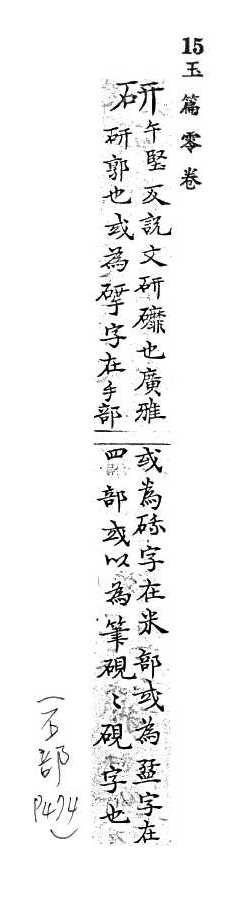 15玉篇零卷
研
午堅反說文研䃺也廣雅
研郭也或為揅字在手部
或為字在米部或為字在
四部或以為筆硯〻硯字也
(石部
P474)